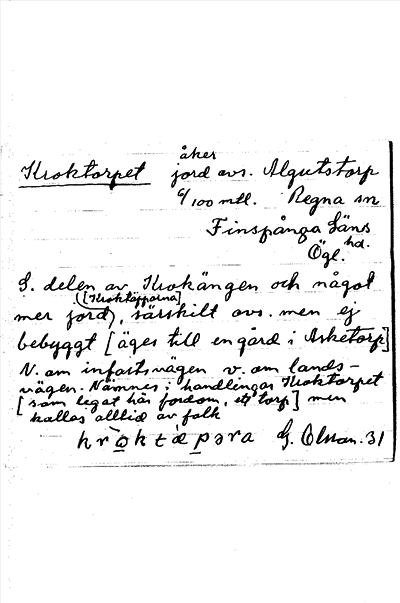 Kroktorpet åker
jord avs. Algutstorp
6/100 mtl. Regna sn
Finspånga läns
hd.
Ögl.
S. delen av Krokängen och något
([Kroktäpporna]
mer jord), särskilt avs. men ej
bebyggt [äges till en gård i Asketorp]
N. om infartsvägen v. om lands-
vägen. Nämnes i handlingar Kroktorpet
[som legat här fordom, ett torp] men
kallas alltid av folk
G. Olsson. 31